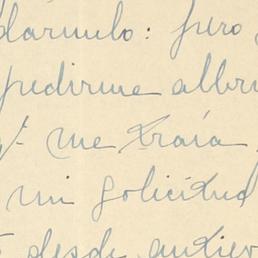 darmelo: pero
pedirme albri
me traía
mi solicitud
desde antier